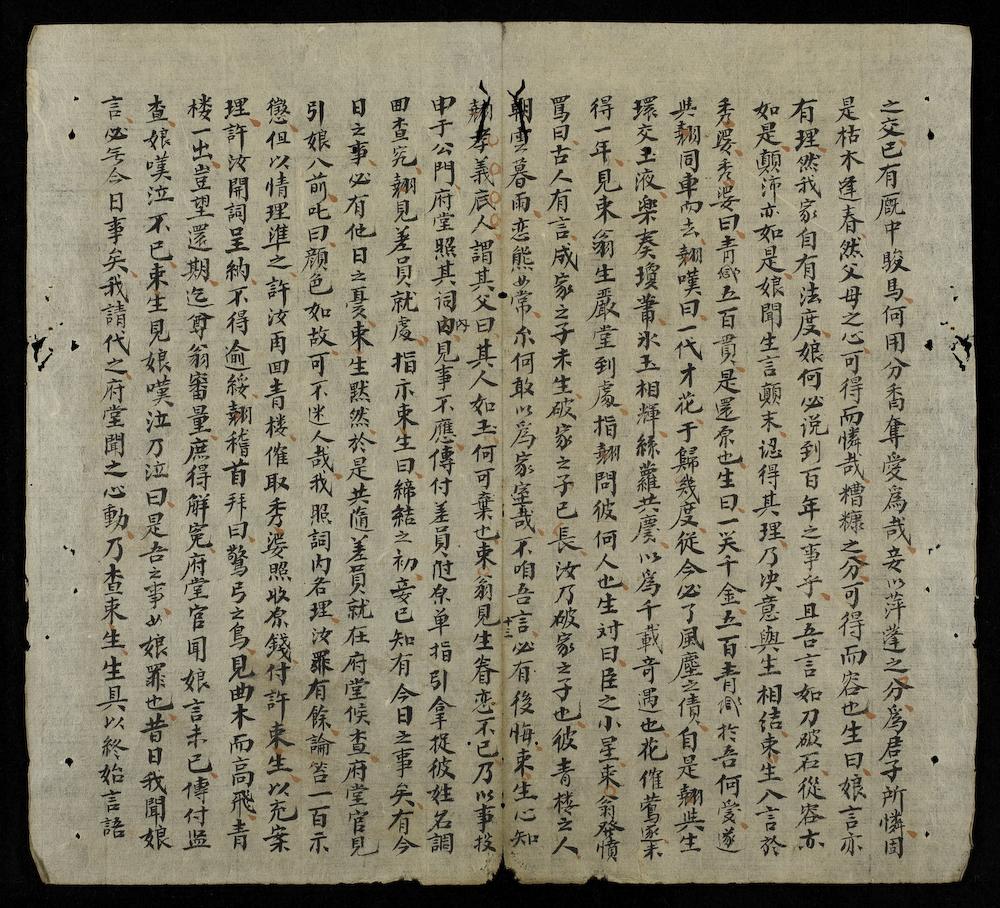 之交已有厩中駿馬何用分喬奪受爲哉妾以萍蓬之分爲居子所憐固
是枯木逢春然父母之心可得而憐哉糟糠之分可得而容也生曰娘言亦
有理然我家自有法度娘何必説到百年之事乎且吾言如刀破石從容亦
如是顛沛亦如是娘聞生言顛末認得其理乃决意與生相結束生入言於
秀婆秀婆曰青蚨五百貫是還原也生曰一笑千金五百青蚨於吾何愛遂
與翹同車而去翹嘆曰一代才花于歸幾度從今必了風塵之債自是翹與生
環交玉液楽奏瓊簫氷玉相輝絲蘿共慶以爲千載奇遇也花催鶯寥未
得一年見束翁生嚴堂到處指翹問彼何人也生对曰臣之小星束翁發憤
罵曰古人有言成家之子未生破家之子已長汝乃破家之子也彼青楼之人
朝雲暮雨恋態如常尔何敢以爲家室哉不咱吾言必有後悔束生心知
翹孝義底人謂其父曰其人如玉何可棄也束翁見生眷恋不已乃以事投
申于公門府堂照其詞內見事不應傳付差員附原单指引拿捉彼姓名調
回查究翹見差員就處指示束生曰締結之初妾已知有今日之事矣有今
日之事必有他日之憂束生黙然於是共隨差員就在府堂候查府堂官見
引娘入前叱曰顔色如故可不迷人哉我照詞內各理汝罪有餘論笞一百示
懲但以情理準之許汝再回青楼催取秀婆照收原錢付許束生以充案
理許汝開詞呈納不得逾綏翹稽首拜曰驚弓之鳥見曲木而高飛青
楼一出豈望還期迄尊翁審量庶得解冤府堂官聞娘言未已傳付监
查娘嘆泣不已束生見娘嘆泣乃泣曰是吾之事如娘罪也昔日我聞娘
言必无今日事矣我請代之府堂聞之心動乃查束生生具以終始言語
十三